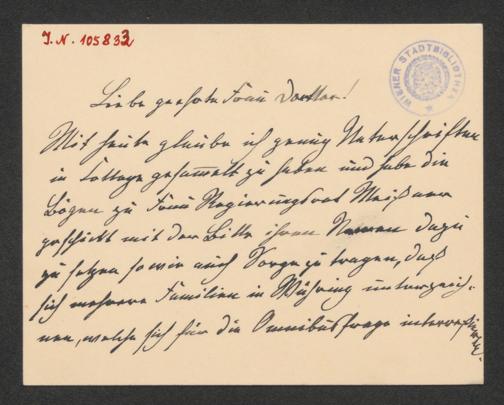 J. N. 105833
WIENER STADTBIBLIOTHEK
Liebe geehrte Frau Doktor!
Mit heute glaube ich genug Unterschriften
in Cottage gesammelt zu haben und habe die
Bögen zu Frau Regierungsrat Meißner
geschickt mit der Bitte ihren Namen dazu
zu setzen sowie auch Sorge zu tragen, daß
sich mehrere Familien in Währing unterzeich-
nen, welche sich für die Omnibusfrage